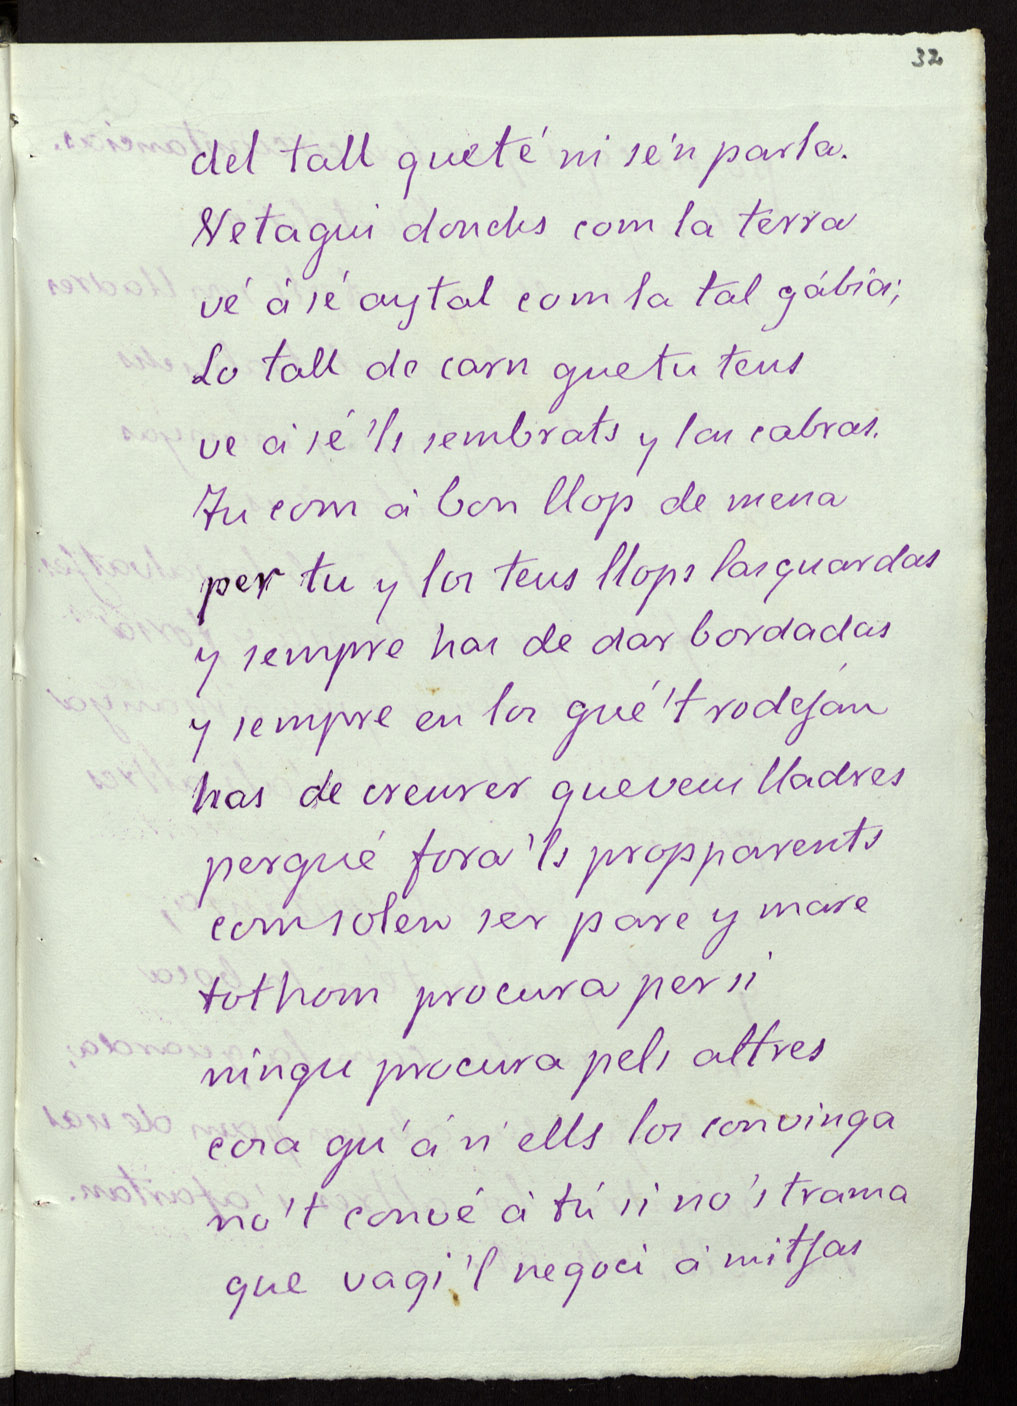 32
del tall que té ni se'n parla.
Vetaqui donchs com la terra
vé á sé aytal com la tal gábia;
Lo tall de carn que tu tens
ve á sé 'ls sembrats y las cabras.
Tu com á bon llop de mena
per tu y los teus llops las guardas
y sempre has de dar bordadas
y sempre en los qué 't rodejan
has de creurer que veus lladres
perqué fora 'ls propparents
com solen ser pare y mare
tothom procura per si
ningu procura pels altres
cosa qu' á n' ells los convinga
no 't convé á tú si no 's trama
que vagi 'l negoci á mitjas